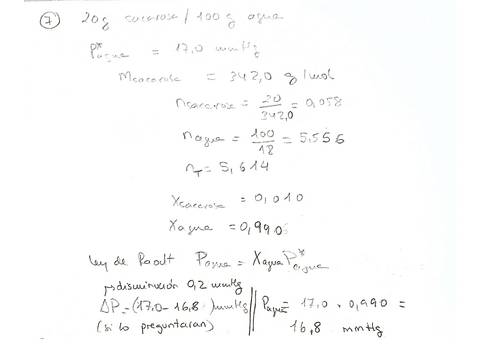 7 20g sacarosa / 100 g agua
P*agua = 17,0 mmHg
Msacarosa = 342,0 g/mol
nsacarosa = 20/342,0 = 0,058
nagua = 100/18 = 5,556
nT = 5,614
Xsacarosa = 0,010
Xagua = 0,990
Ley de Raoult Pagua = Xagua P*agua
↳ disminución 0,2 mmHg
ΔP = (17,0 - 16,8) mmHg || Pagua = 17,0 . 0,990 =
(si lo preguntaran) 16,8 mmHg